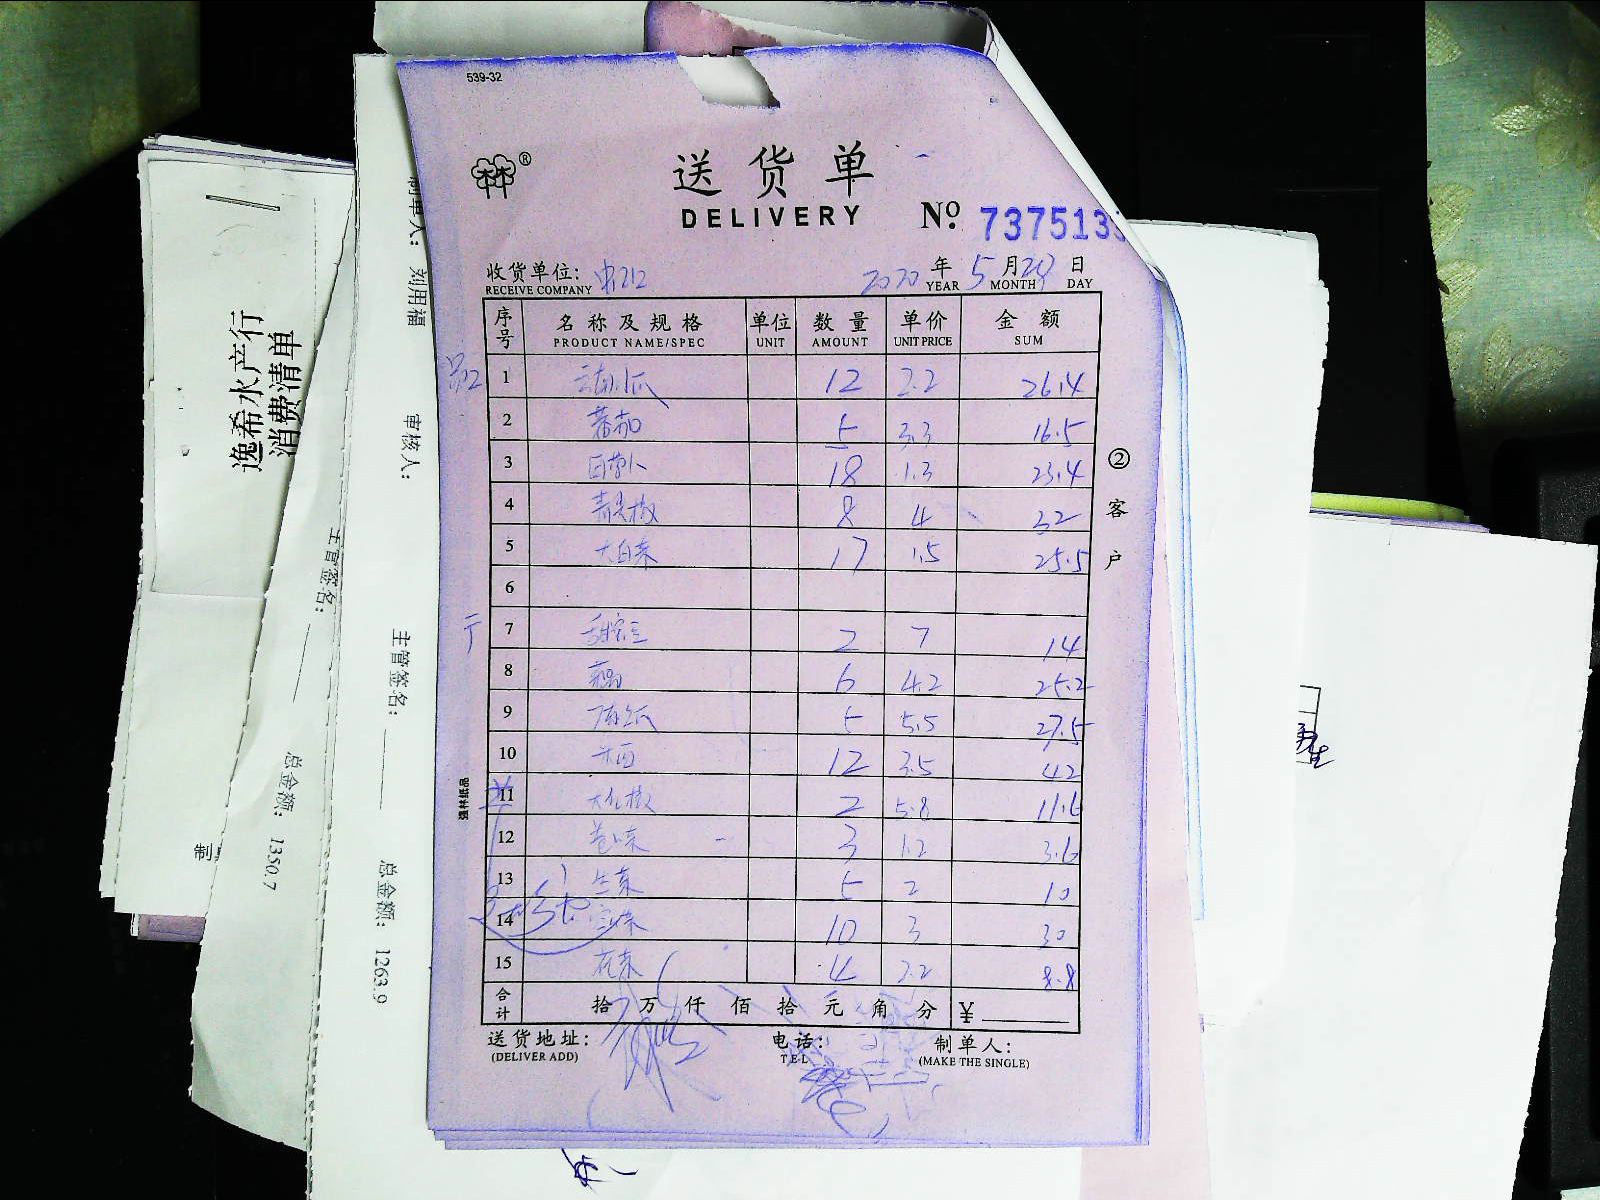 539-32
送货单
DELIVERY
№ 737513
收货单位:
RECEIVE COMPANY
2020 年 5 月 日
YEAR MONTH DAY
序号 名称及规格 单位 数量 单价 金额
PRODUCT NAME/SPEC UNIT AMOUNT UNIT PRICE SUM
1 12 2.2 26.4
2 蕃茄 5 3.3 16.5
3 白萝卜 18 1.3 23.4
4 青尖椒 8 4 32
5 大白菜 17 1.5 25.5
6
7 甜蜜豆 2 7 14
8 6 4.2 25.2
9 5 5.5 27.5
10 12 3.5 42
11 大红椒 2 5.8 11.6
12 3 1.2 3.6
13 生菜 5 2 10
14 10 3 30
15 花菜 4 2.2 8.8
合计 拾 万 仟 佰 拾 元 角 分 ¥
送货地址:
(DELIVER ADD)
电话:
TEL
制单人:
(MAKE THE SINGLE)
② 客户
强林纸品
逸希水产行
消费清单
制单人: 刘用福
审核人:
主管签名:
总金额: 1263.9
主管签名:
总金额: 1350.7
制